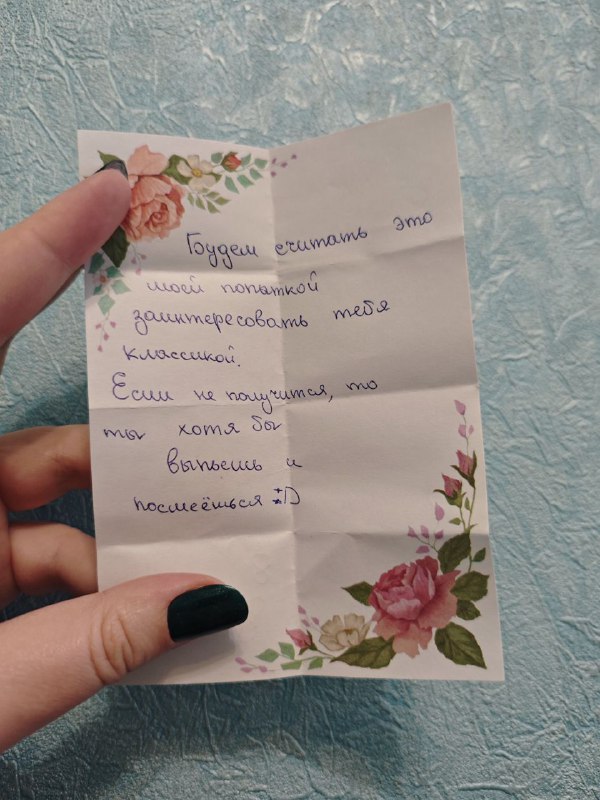 Будем считать это
моей попыткой
заинтересовать тебя
классикой.
Если не получится, то
ты хотя бы
выпьешь и
посмеёшься :D